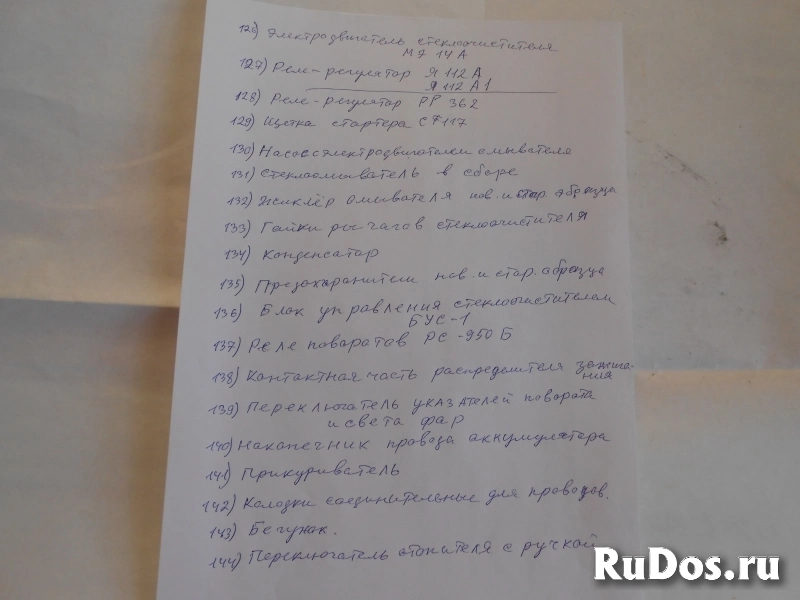 126) Электродвигатель стеклоочистителя
МЭ 14А
127) Реле-регулятор Я 112 А
Я 112 А1
128) Реле-регулятор РР 362
129) Щетка стартера СТ 117
130) Насос электродвигателя омывателя
131) Стеклоомыватель в сборе
132) Жиклёр омывателя нов. и стар. образца
133) Гайки рычагов стеклоочистителя
134) Конденсатор
135) Предохранители нов. и стар. образца
136) Блок управления стеклоочистителем
БУС-1
137) Реле поворотов РС-950 Б
138) Контактная часть распределителя зажига-
ния
139) Переключатель указателей поворота
и света фар
140) Наконечник провода аккумулятора
141) Прикуриватель
142) Колодки соединительные для проводов.
143) Бегунок.
144) Переключатель отопителя с ручкой
RuDos.ru